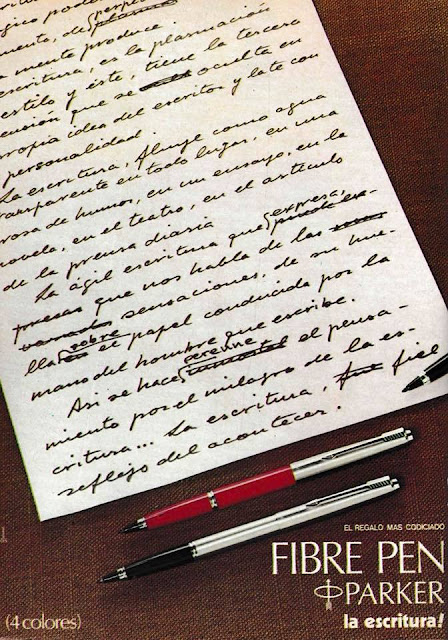 gico poder
mento, de perpe
a mente produce.
escritura, es la plasmación
estilo y éste, tiene la tercera
ensión que se oculta en
ropia idea del escritor y late con
personalidad.
La escritura, fluye como agua
ransparente en todo lugar, en una
rosa de humor, en un ensayo, en la
novela, en el teatro, en el artículo
de la prensa diaria
La ágil escritura que expresa,
que nos habla de las
sensaciones, de su hue-
lla sobre el papel conducida por la
mano del hombre que escribe.
Asi se hace perenne el pensa-
miento por el milagro de la es-
critura... La escritura, fiel
reflejo del acontecer.
EL REGALO MAS CODICIADO
FIBRE PEN
PARKER
la escritura!
(4 colores)